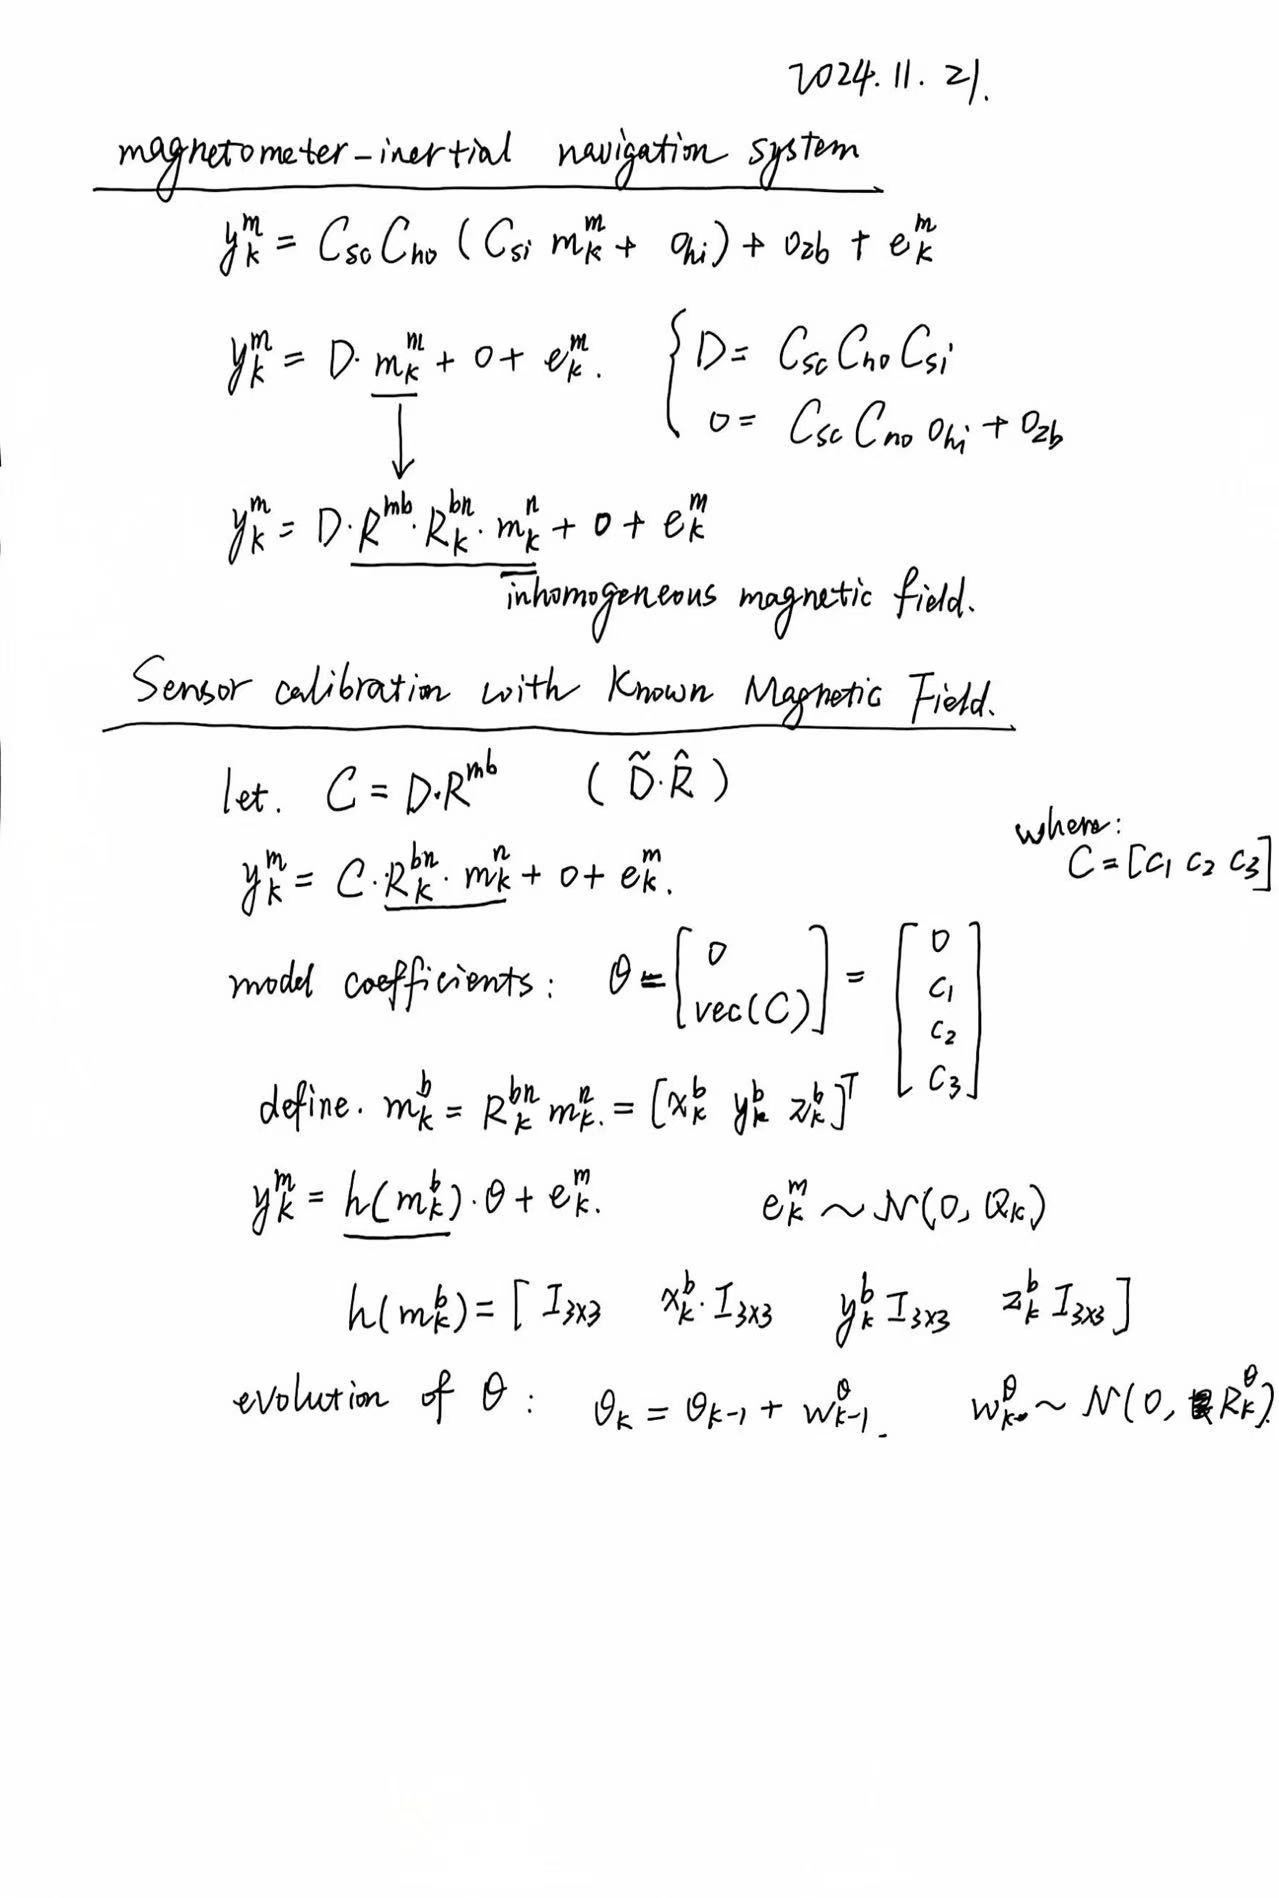 2024.11.21.
magnetometer-inertial navigation system
y_k^m = C_sc C_no (C_si m_k^m + o_hi) + o_zb + e_k^m
y_k^m = D · m_k^m + o + e_k^m. { D = C_sc C_no C_si
o = C_sc C_no o_hi + o_zb
↓
y_k^m = D · R^mb · R_k^bn · m_k^n + o + e_k^m
inhomogeneous magnetic field.
Sensor calibration with Known Magnetic Field.
let. C = D·R^mb ( D̃·R̂ )
where:
C = [c1 c2 c3]
y_k^m = C · R_k^bn · m_k^n + o + e_k^m.
model coefficients: θ = [o vec(C)] = [o c1 c2 c3]
define. m_k^b = R_k^bn m_k^n. = [x_k^b y_k^b z_k^b]^T
y_k^m = h(m_k^b) · θ + e_k^m. e_k^m ~ N(0, Q_k)
h(m_k^b) = [ I_3×3 x_k^b · I_3×3 y_k^b I_3×3 z_k^b I_3×3 ]
evolution of θ : θ_k = θ_k-1 + w_k-1^θ. w_k^θ ~ N(0, R_k^θ)